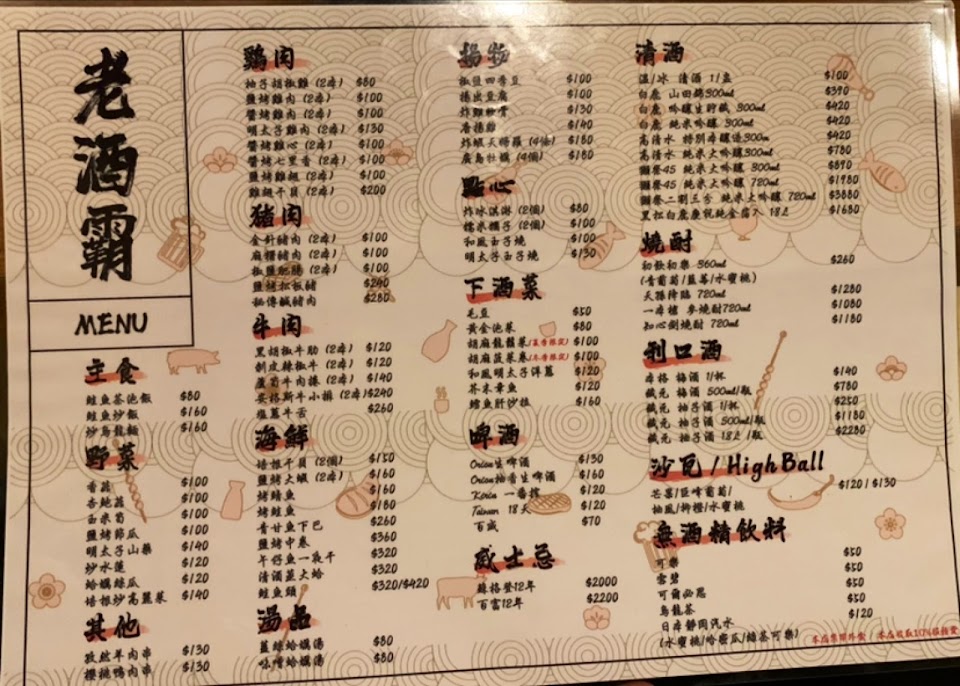 老酒霸
MENU
主食
鮭魚茶泡飯 $80
鮭魚炒飯 $160
炒烏龍麵 $160
野菜
香菇 $100
杏鮑菇 $100
玉米筍 $100
鹽烤節瓜 $100
明太子山藥 $140
炒水蓮 $120
蛤蠣絲瓜 $120
培根炒高麗菜 $140
其他
孜然羊肉串 $130
櫻桃鴨肉串 $130
鶏肉
柚子胡椒雞 (2本) $80
鹽烤雞肉 (2本) $100
醬烤雞肉 (2本) $100
明太子雞肉 (2本) $130
醬烤雞心 (2本) $100
醬烤七里香 (2本) $100
鹽烤雞翅 (2本) $100
雞翅干貝 (2本) $200
豬肉
金針豬肉 (2本) $100
麻糬豬肉 (2本) $100
椒鹽肥腸 (2本) $100
鹽烤松板豬 $240
秘傳鹹豬肉 $280
牛肉
黑胡椒牛肋 (2本) $120
剝皮辣椒牛 (2本) $120
蘆筍牛肉捲 (2本) $140
安格斯牛小排 (2本) $240
塩蔥牛舌 $260
海鮮
培根干貝 (2個) $150
鹽烤大蝦 (2本) $160
烤鯖魚 $160
烤鮭魚 $180
青甘魚下巴 $260
鹽烤中卷 $360
午仔魚一夜干 $320
清酒蒸大蛤 $320
鮭魚頭 $320/$420
湯品
薑絲蛤蠣湯 $80
味噌蛤蠣湯 $80
揚物
椒鹽四季豆 $100
揚出豆腐 $100
炸雞軟骨 $130
唐揚雞 $140
炸蝦天婦羅 (4個) $180
廣島牡蠣 (4個) $180
點心
炸冰淇淋 (2個) $80
糯米糰子 (2個) $100
和風玉子燒 $100
明太子玉子燒 $100
下酒菜
毛豆 $50
黃金泡菜 $80
胡麻龍鬚菜/夏季限定 $100
胡麻菠菜卷/冬季限定 $100
和風明太子洋蔥 $120
芥末章魚 $120
鱈魚肝沙拉 $160
啤酒
Orion生啤酒 $130
Orion柚香生啤酒 $160
Kirin 一番搾 $120
Taiwan 18天 $120
百威 $70
威士忌
蘇格登12年 $2000
百富12年 $2200
清酒
溫/冰 清酒 1/壺 $100
白鹿 山田錦300ml $390
白鹿 吟釀生貯藏 300ml $420
白鹿 純米吟釀 300ml $420
高清水 特別本釀造300m $420
高清水 純米大吟釀300ml $780
獺祭45 純米大吟釀 300ml $890
獺祭45 純米大吟釀 720ml $1980
獺祭二割三分 純米大吟釀 720ml $3880
黑松白鹿慶祝純金箔入 1.8L $1680
燒酎
初飲初樂 360ml $260
(青葡萄/藍莓/水蜜桃)
天孫降臨 720ml $1280
一本槍 麥燒酎720ml $1080
知心劍燒酎 720ml $1180
利口酒
本格 梅酒 1/杯 $140
藏元 梅酒 500ml/瓶 $780
藏元 柚子酒 1/杯 $250
藏元 柚子酒 500ml/瓶 $1180
藏元 柚子酒 1.8L 1瓶 $2280
沙瓦/HighBall
芒果/巨峰葡萄/ $120/$130
柚風/柳橙/水蜜桃
無酒精飲料
可樂 $50
雪碧 $50
可爾必思 $50
烏龍茶 $50
日本靜岡汽水 $120
(水蜜桃/哈密瓜/綠茶可樂)
本店禁帶外食 本店收取10%服務費